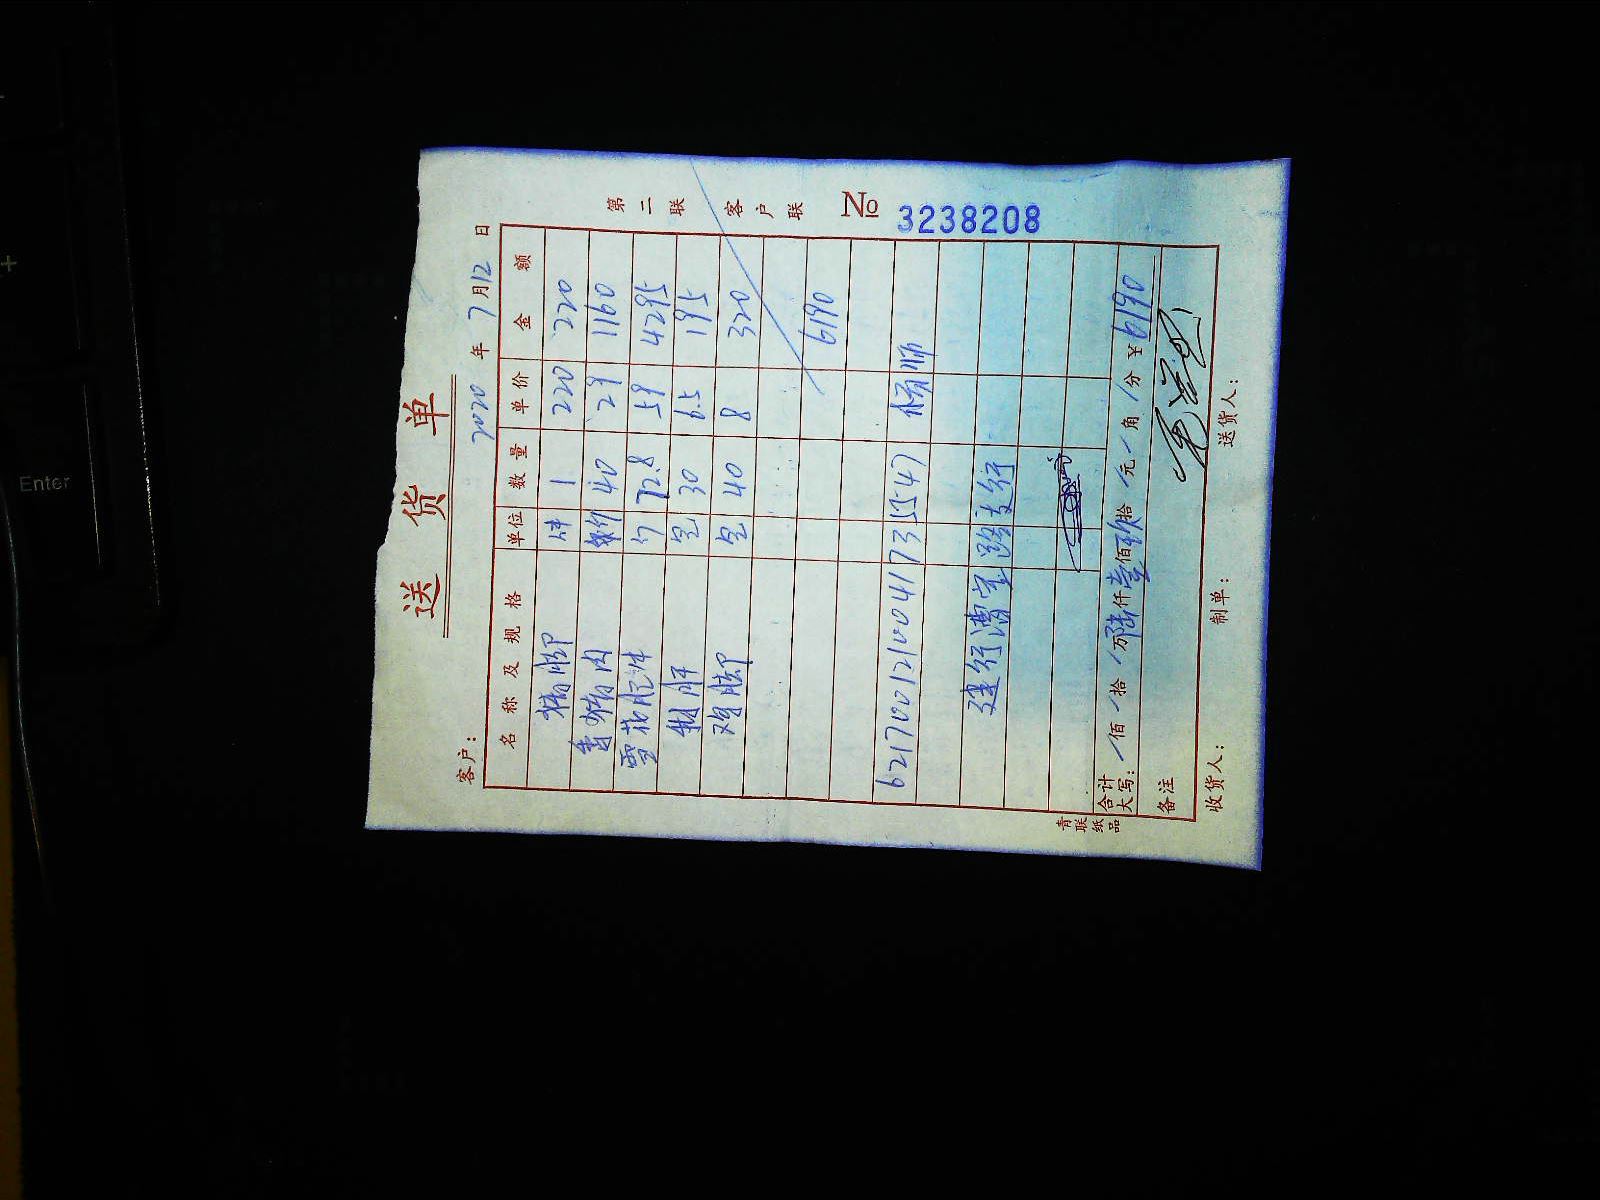 送货单
2020年7月12日
客户：
第二联 客户联 № 3238208
名称及规格 单位 数量 单价 金额
猪脚 件 1 220 220
香猪肉 40 29 1160
雪花肥牛 斤 72.8 59 4295
包 30 6.5 195
鸡脚 包 40 8 320
6190
6217001210041735547
建行漕宝路支行
合计大写： / 佰 / 拾 / 万 陆 仟 壹 佰 玖 拾 / 元 / 角 / 分 ¥ 6190
备注
收货人： 制单： 送货人：
青联纸品
Enter
+